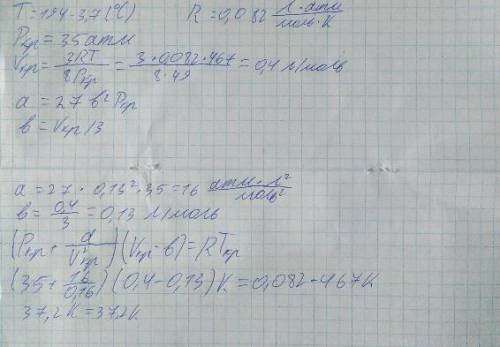 T=194-3,7 (°C) R=0,082 л·атм/моль·К
Pкр=35 атм
Vкр=3RT/8Pкр=3·0,082·467/8·49=0,4 л/моль
a=27 в²Pкр
в=Vкр/3
a=27·0,13²·35=16 атм·л²/моль²
в=0,4/3=0,13 л/моль
(Pкр+a/V²кр)(Vкр-в)=RTкр
(35+16/0,16)(0,4-0,13)К=0,082-467К
37,2К=37,2К